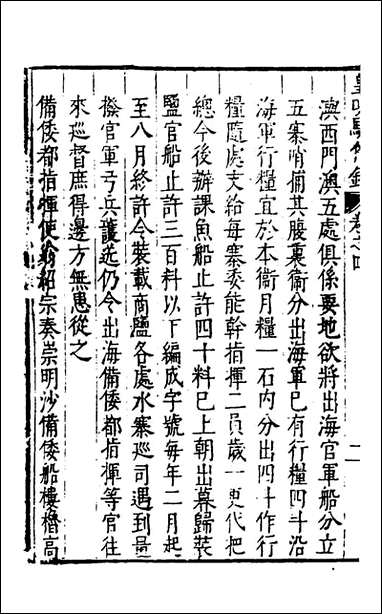 皇明馭倭錄 卷之四 二
澳西門澳五處俱係要地欲將出海官軍船分立
五寨哨捕其腹裏衛分出海軍巳有行糧四斗沿
海軍行糧宜於本衛月糧一石內分出四斗作行
糧隨處支給每寨委能幹指揮二員歲一更代把
總今後辦課魚船止許四十料巳上朝出暮歸裝
鹽官船止許三百料以下編成字號每年二月起
至八月終許令裝載商鹽各處水寨巡司遇到量
撥官軍弓兵護送仍令出海備倭都指揮等官往
來巡督庶得邊方無患從之
備倭都指揮使翁紹宗奏崇明沙備倭船樓櫓高